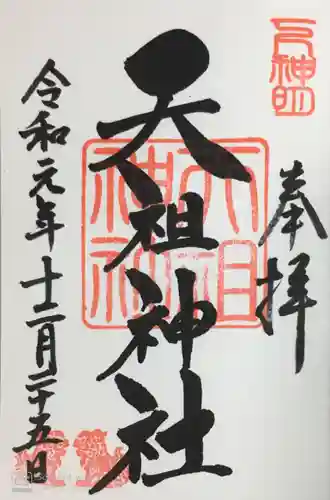 奉拝
天祖神社
令和元年十二月二十五日
天祖神社